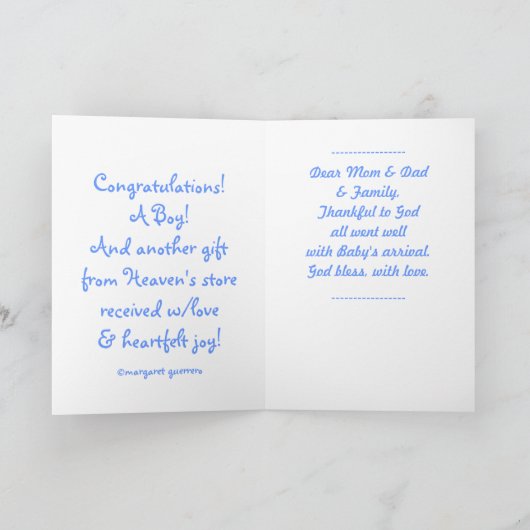 Congratulations!
A Boy!
And another gift
from Heaven's store
received w/love
& heartfelt joy!
©margaret guerrero
--------------------
Dear Mom & Dad
& Family,
Thankful to God
all went well
with Baby's arrival.
God bless, with love.
--------------------